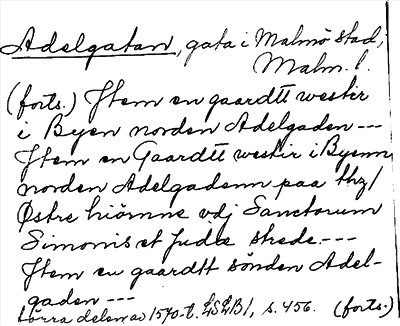 Adelgatan, gata i Malmö stad,
Malm. l.
(forts.) Item en gaardtt westir
i Byen norden Adelgaden ---
Item en Gaardtt westir i Byenn
norden Adelgadenn paa thz/
Østre hiömne vdj Sanctorum
Simonis et Judæ strede. ---
Item en gaardtt sönden Adel-
gaden ---
Norra delen av 1570-t. LSLB1, s. 456. (forts.)